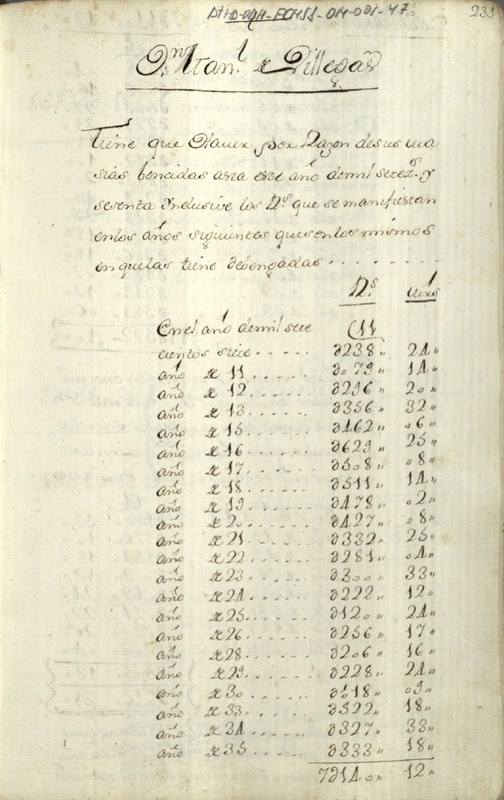 AHD-QGH-FCHSS-OM-091-47
233
Dn Man.l de Villegas
Tiene que Haver por Razon de sus ma
sias bencidas asta este año de mil setez.s y
sesenta Inclusive los Rs que se manifiestan
en los años siguientes que son los mismos
en que las tiene debengadas . . . . . . . . .
Rs. mrs
En el año de mil sete (11
cientos siete . . . . . ∂238 „ 24 „
año de 11 . . . . . . ∂079 „ 14 „
año de 12 . . . . . . ∂296 „ 20 „
año de 13 . . . . . . ∂356 „ 32 „
año de 15 . . . . . . ∂462 „ 06 „
año de 16 . . . . . . ∂629 „ 25 „
año de 17 . . . . . . ∂508 „ 08 „
año de 18 . . . . . . ∂511 „ 14 „
año de 19 . . . . . . ∂478 „ 02 „
año de 20 . . . . . . ∂427 „ 08 „
año de 21 . . . . . . ∂332 „ 25 „
año de 22 . . . . . . ∂281 „ 04 „
año de 23 . . . . . . ∂300 „ 33 „
año de 24 . . . . . . ∂222 „ 12 „
año de 25 . . . . . . ∂120 „ 24 „
año de 26 . . . . . . ∂256 „ 17 „
año de 28 . . . . . . ∂206 „ 16 „
año de 29 . . . . . . ∂228 „ 24 „
año de 30 . . . . . . ∂018 „ 09 „
año de 33 . . . . . . ∂522 „ 18 „
año de 34 . . . . . . ∂327 „ 33 „
año de 35 . . . . . . ∂333 „ 18 „
7∂140 „ 12 „